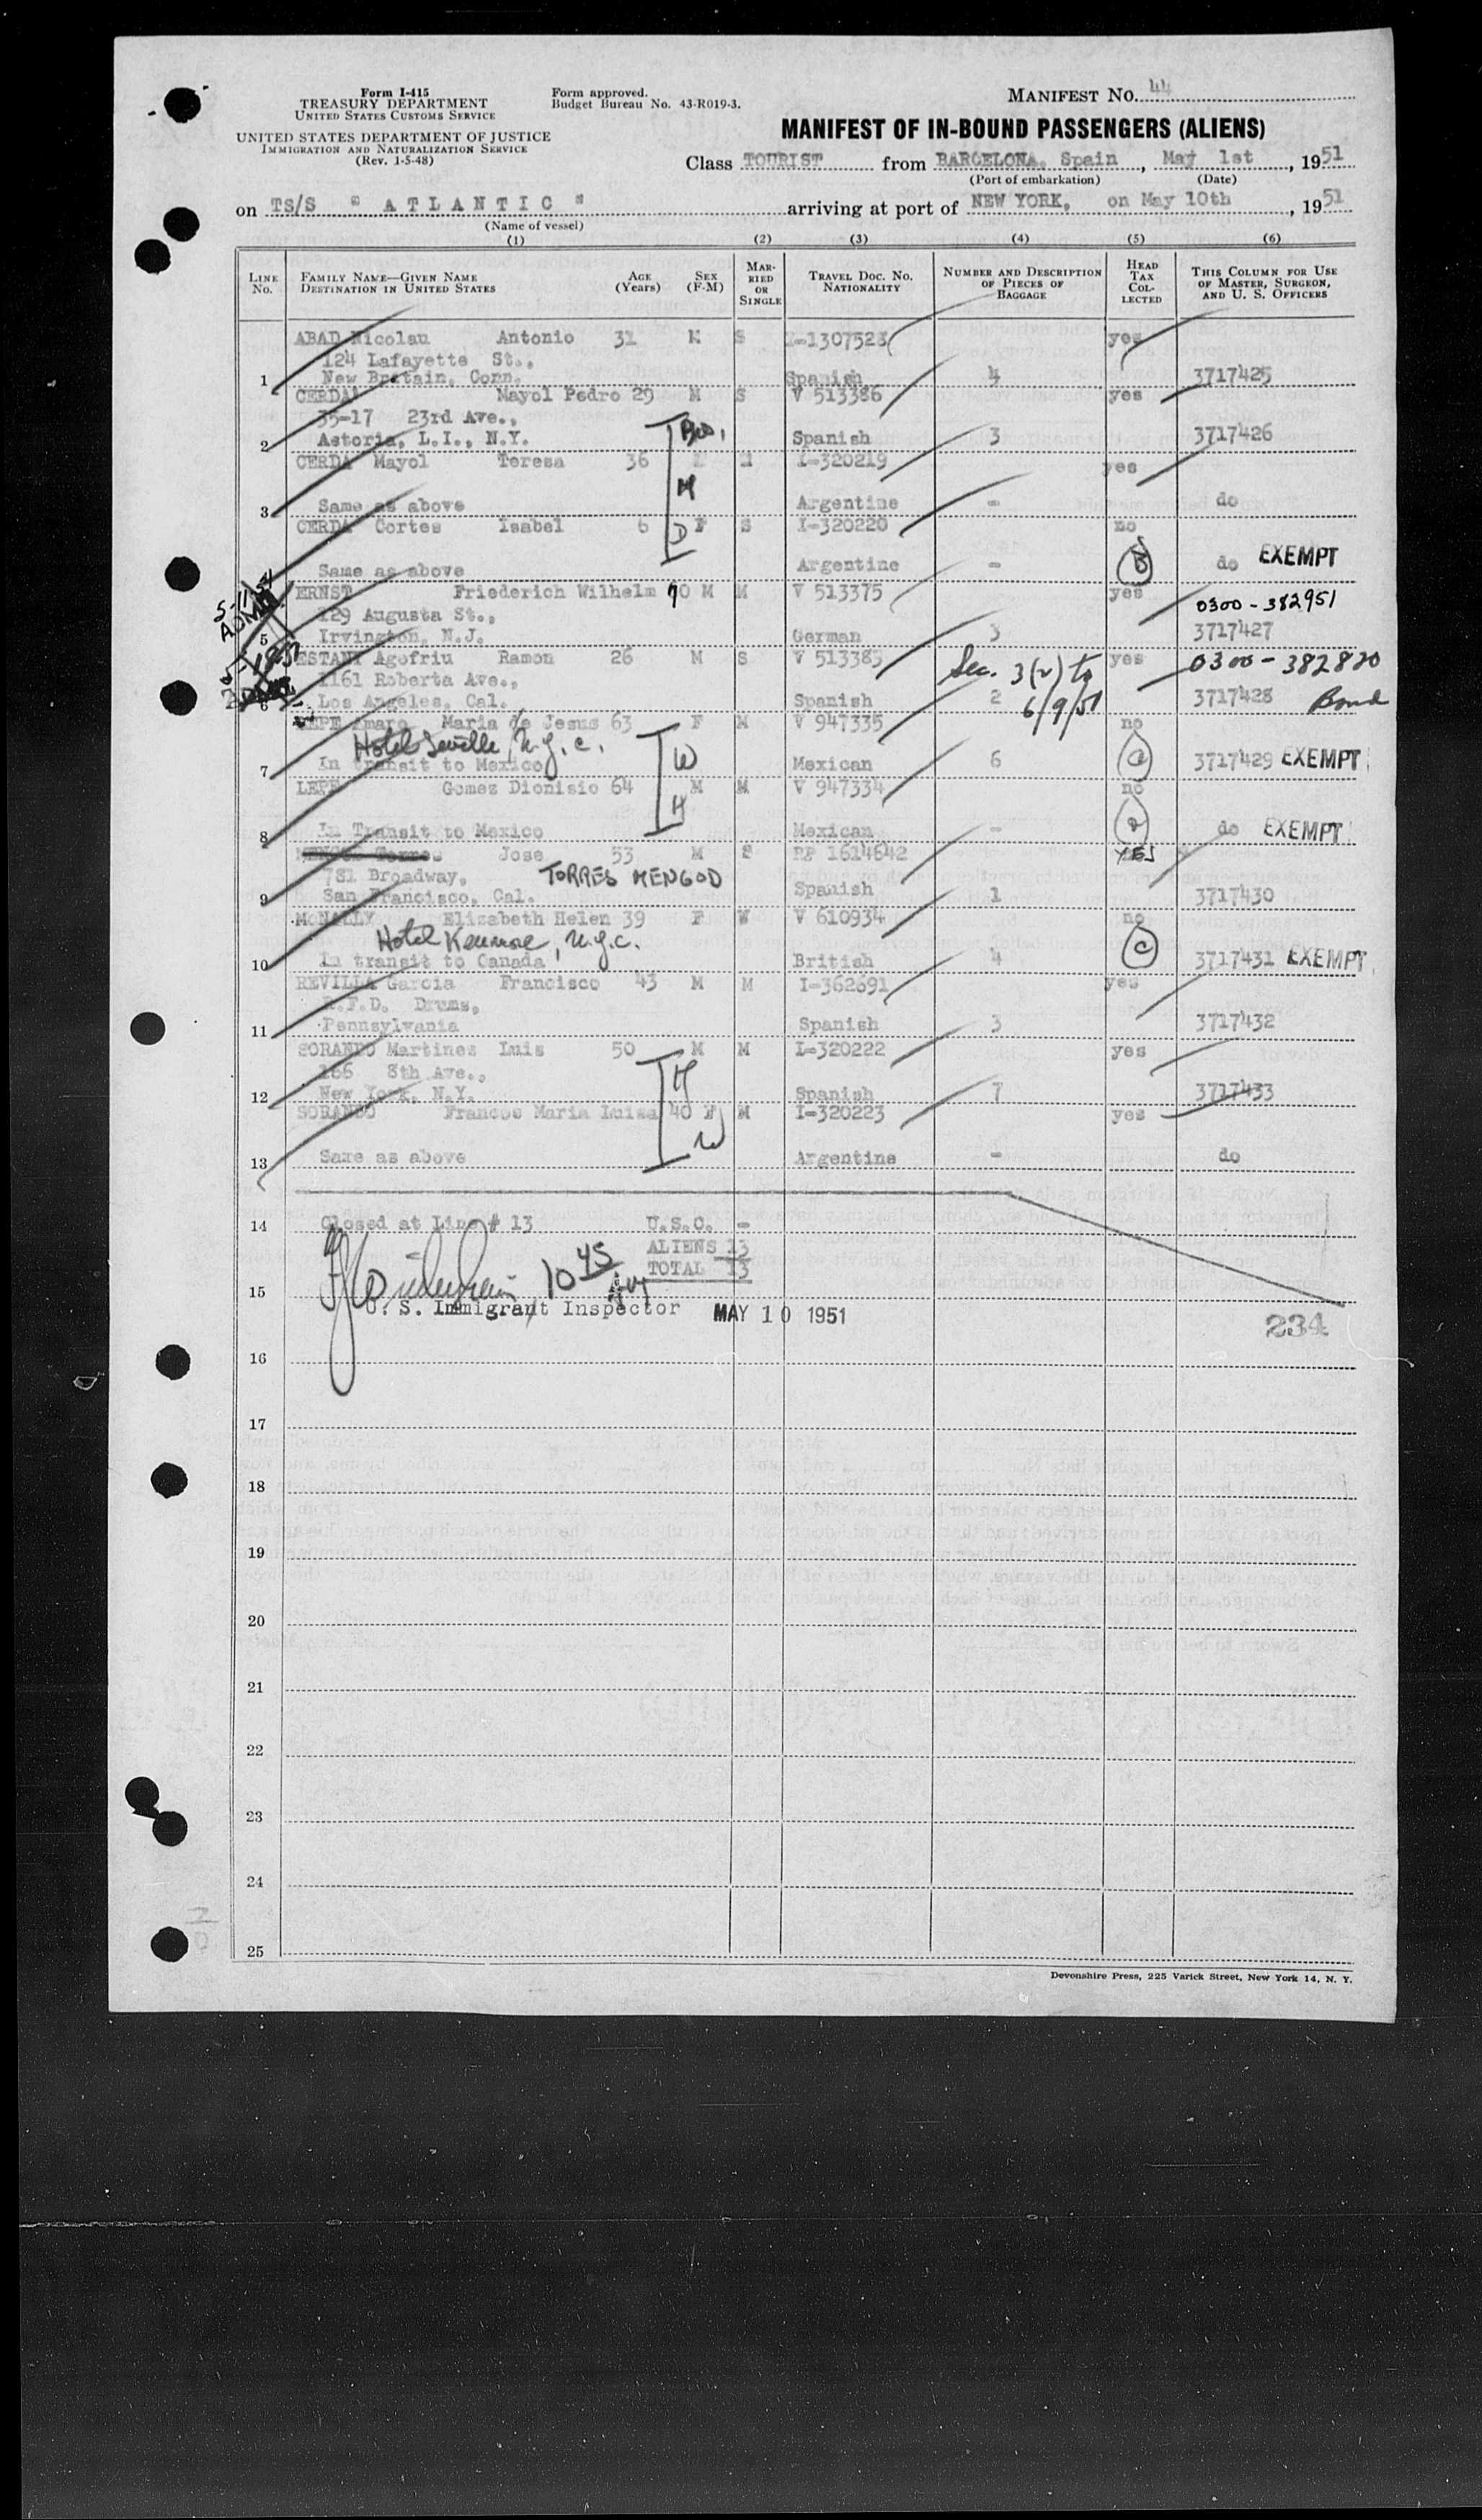 Form I-415
TREASURY DEPARTMENT
UNITED STATES CUSTOMS SERVICE
UNITED STATES DEPARTMENT OF JUSTICE
IMMIGRATION AND NATURALIZATION SERVICE
(Rev. 1-5-48)
Form approved.
Budget Bureau No. 43-R019-3.
MANIFEST NO. 44
MANIFEST OF IN-BOUND PASSENGERS (ALIENS)
Class TOURIST from BARCELONA, Spain, May 1st, 1951
(Port of embarkation) (Date)
on TS/S " ATLANTIC " arriving at port of NEW YORK, on May 10th, 1951
(Name of vessel)
(1) (2) (3) (4) (5) (6)
LINE NO. FAMILY NAME—GIVEN NAME DESTINATION IN UNITED STATES AGE (Years) SEX (F-M) MARRIED OR SINGLE TRAVEL DOC. NO. NATIONALITY NUMBER AND DESCRIPTION OF PIECES OF BAGGAGE HEAD TAX COLLECTED THIS COLUMN FOR USE OF MASTER, SURGEON, AND U. S. OFFICERS
ABAD Nicolau Antonio 31 M S I-1307528 yes
124 Lafayette St.,
1 New Britain, Conn. Spanish 4 3717425
CERDA Mayol Pedro 29 M S V 513386 yes
35-17 23rd Ave., Bro.
2 Astoria, L.I., N.Y. Spanish 3 3717426
CERDA Mayol Teresa 36 M I-320219 yes
M
3 Same as above Argentine - do
CERDA Cortes Isabel 6 D F S I-320220 no
4 Same as above Argentine - do EXEMPT
ERNST Friederich Wilhelm 70 M M V 513375 yes 0300-382951
129 Augusta St.,
5 Irvington, N.J. German 3 3717427
ESTANY Agofriu Ramon 26 M S V 513385 Sec. 3(2) to yes 0300-382820
1161 Roberta Ave.,
6 Los Angeles, Cal. Spanish 2 6/9/51 3717428 Bond
LEPE Amaro Maria de Jesus 63 F M V 947335 no
Hotel Seville, N.Y.C.
7 In transit to Mexico W Mexican 6 3717429 EXEMPT
LEPE Gomez Dionisio 64 M M V 947334 no
H
8 In Transit to Mexico Mexican - do EXEMPT
Torres Jose 53 M S RP 1614642 YES
781 Broadway, TORRES MENGOD
9 San Francisco, Cal. Spanish 1 3717430
McNALLY Elizabeth Helen 39 F W V 610934 no
Hotel Kenmore, N.Y.C.
10 In transit to Canada British 4 C 3717431 EXEMPT
REVILLA Garcia Francisco 43 M M I-362691 yes
R.F.D. Drums,
11 Pennsylvania Spanish 3 3717432
SORANDO Martinez Luis 50 M M I-320222 yes
166 8th Ave., H
12 New York, N.Y. Spanish 7 3717433
SORANDO Frances Maria Luisa 40 F M I-320223 yes
W
13 Same as above Argentine - do
14 Closed at Line # 13 U.S.C. -
ALIENS 13
10 45 AM TOTAL 13
15
U. S. Immigrant Inspector MAY 10 1951
234
16
17
18
19
20
21
22
23
24
25
Devonshire Press, 225 Varick Street, New York 14, N. Y.